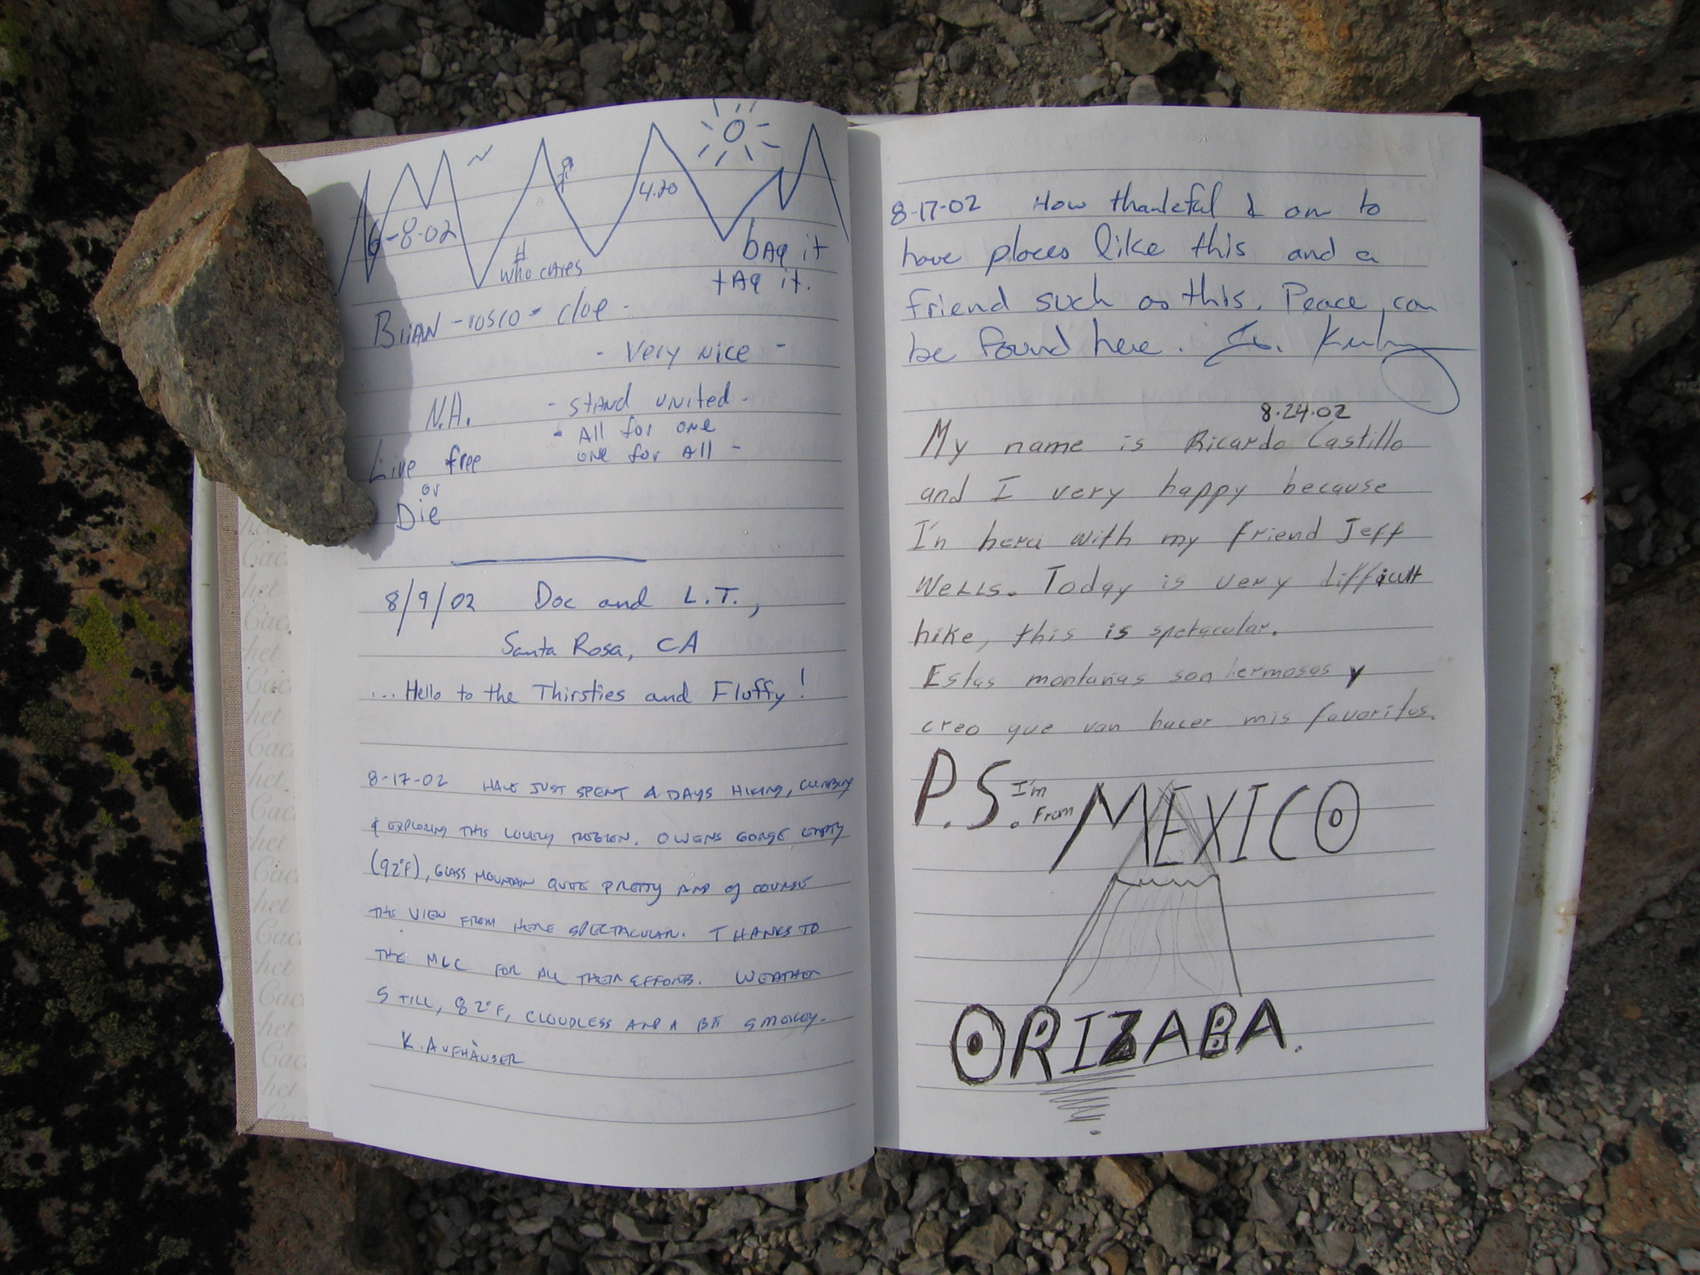 6-8-02
4:20
# who cares
bAg it
tAg it.
BriAN - rosco - cloe -
- Very Nice -
N.H.
- stAND UNited -
- All for one
one for All -
Live free
or
Die
8/9/02 Doc and L.T.,
Santa Rosa, CA
... Hello to the Thirsties and Fluffy!
8-17-02 HAVE JUST SPENT 4 DAYS HIKING, CLIMBING
& EXPLORING THIS LOVELY REGION. OWENS GORGE EMPTY
(92°F), GLASS MOUNTAIN QUITE PRETTY AND of COURSE
THE VIEW FROM HERE SPECTACULAR. THANKS TO
THE MLC FOR ALL THEIR EFFORTS. WEATHER
STILL, 82°F, CLOUDLESS AND A BIT SMOKEY.
K. AUFHAUSER
8-17-02 How thankful I am to
have places like this and a
friend such as this. Peace can
be found here.
8.24.02
My name is Ricardo Castillo
and I very happy because
I'n hera with my friend Jeff
WELLS. Today is very difficult
hike, this is spetacular.
Estas montañas son hermosas y
creo que van hacer mis favoritas.
P.S. I'm From MEXICO
ORIZABA.